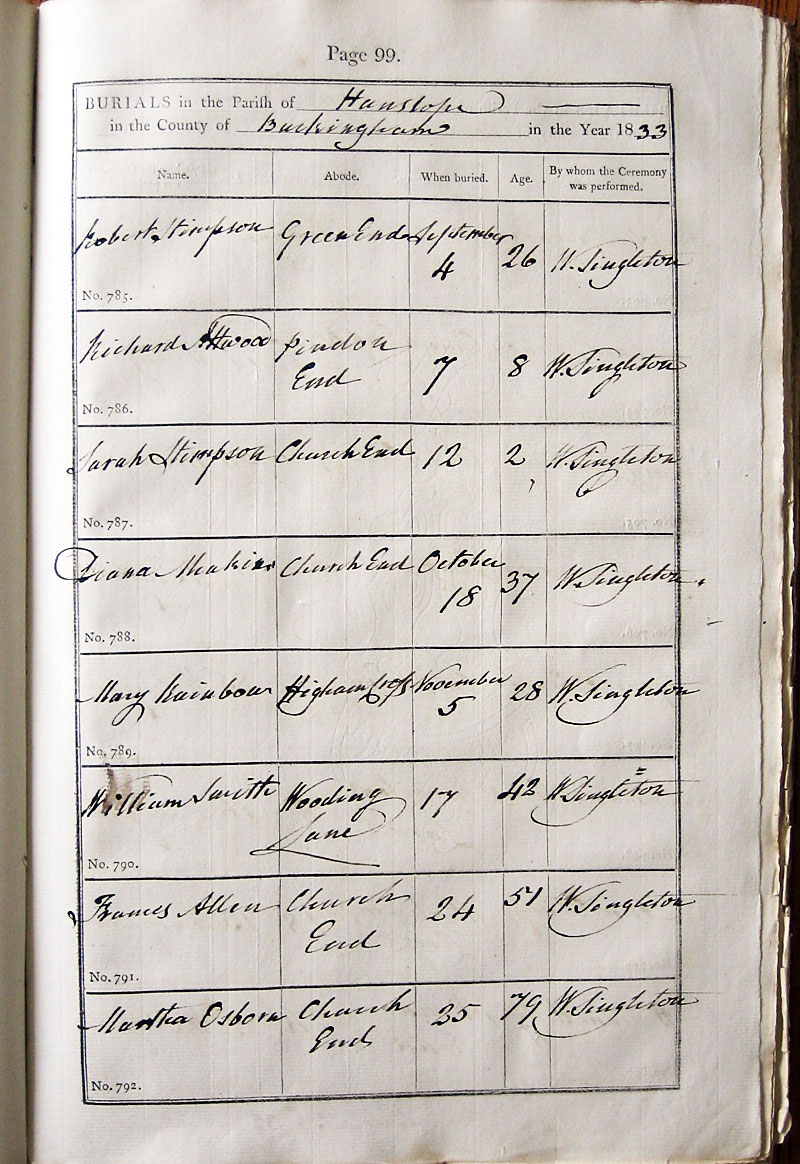 Page 99.
BURIALS in the Parish of Hanslope
in the County of Buckingham in the Year 1833
Name. Abode. When buried. Age. By whom the Ceremony was performed.
Robert Stimpson Green End September 4 26 W. Singleton
No. 785.
Richard Attwood Pindon End 7 8 W. Singleton
No. 786.
Sarah Stimpson Church End 12 2 W. Singleton
No. 787.
Diana Meakins Church End October 18 37 W. Singleton
No. 788.
Mary Rainbow Higham Cross November 5 28 W. Singleton
No. 789.
William Smith Wooding Lane 17 42 W. Singleton
No. 790.
Frances Allen Church End 24 51 W. Singleton
No. 791.
Martha Osborn Church End 25 79 W. Singleton
No. 792.